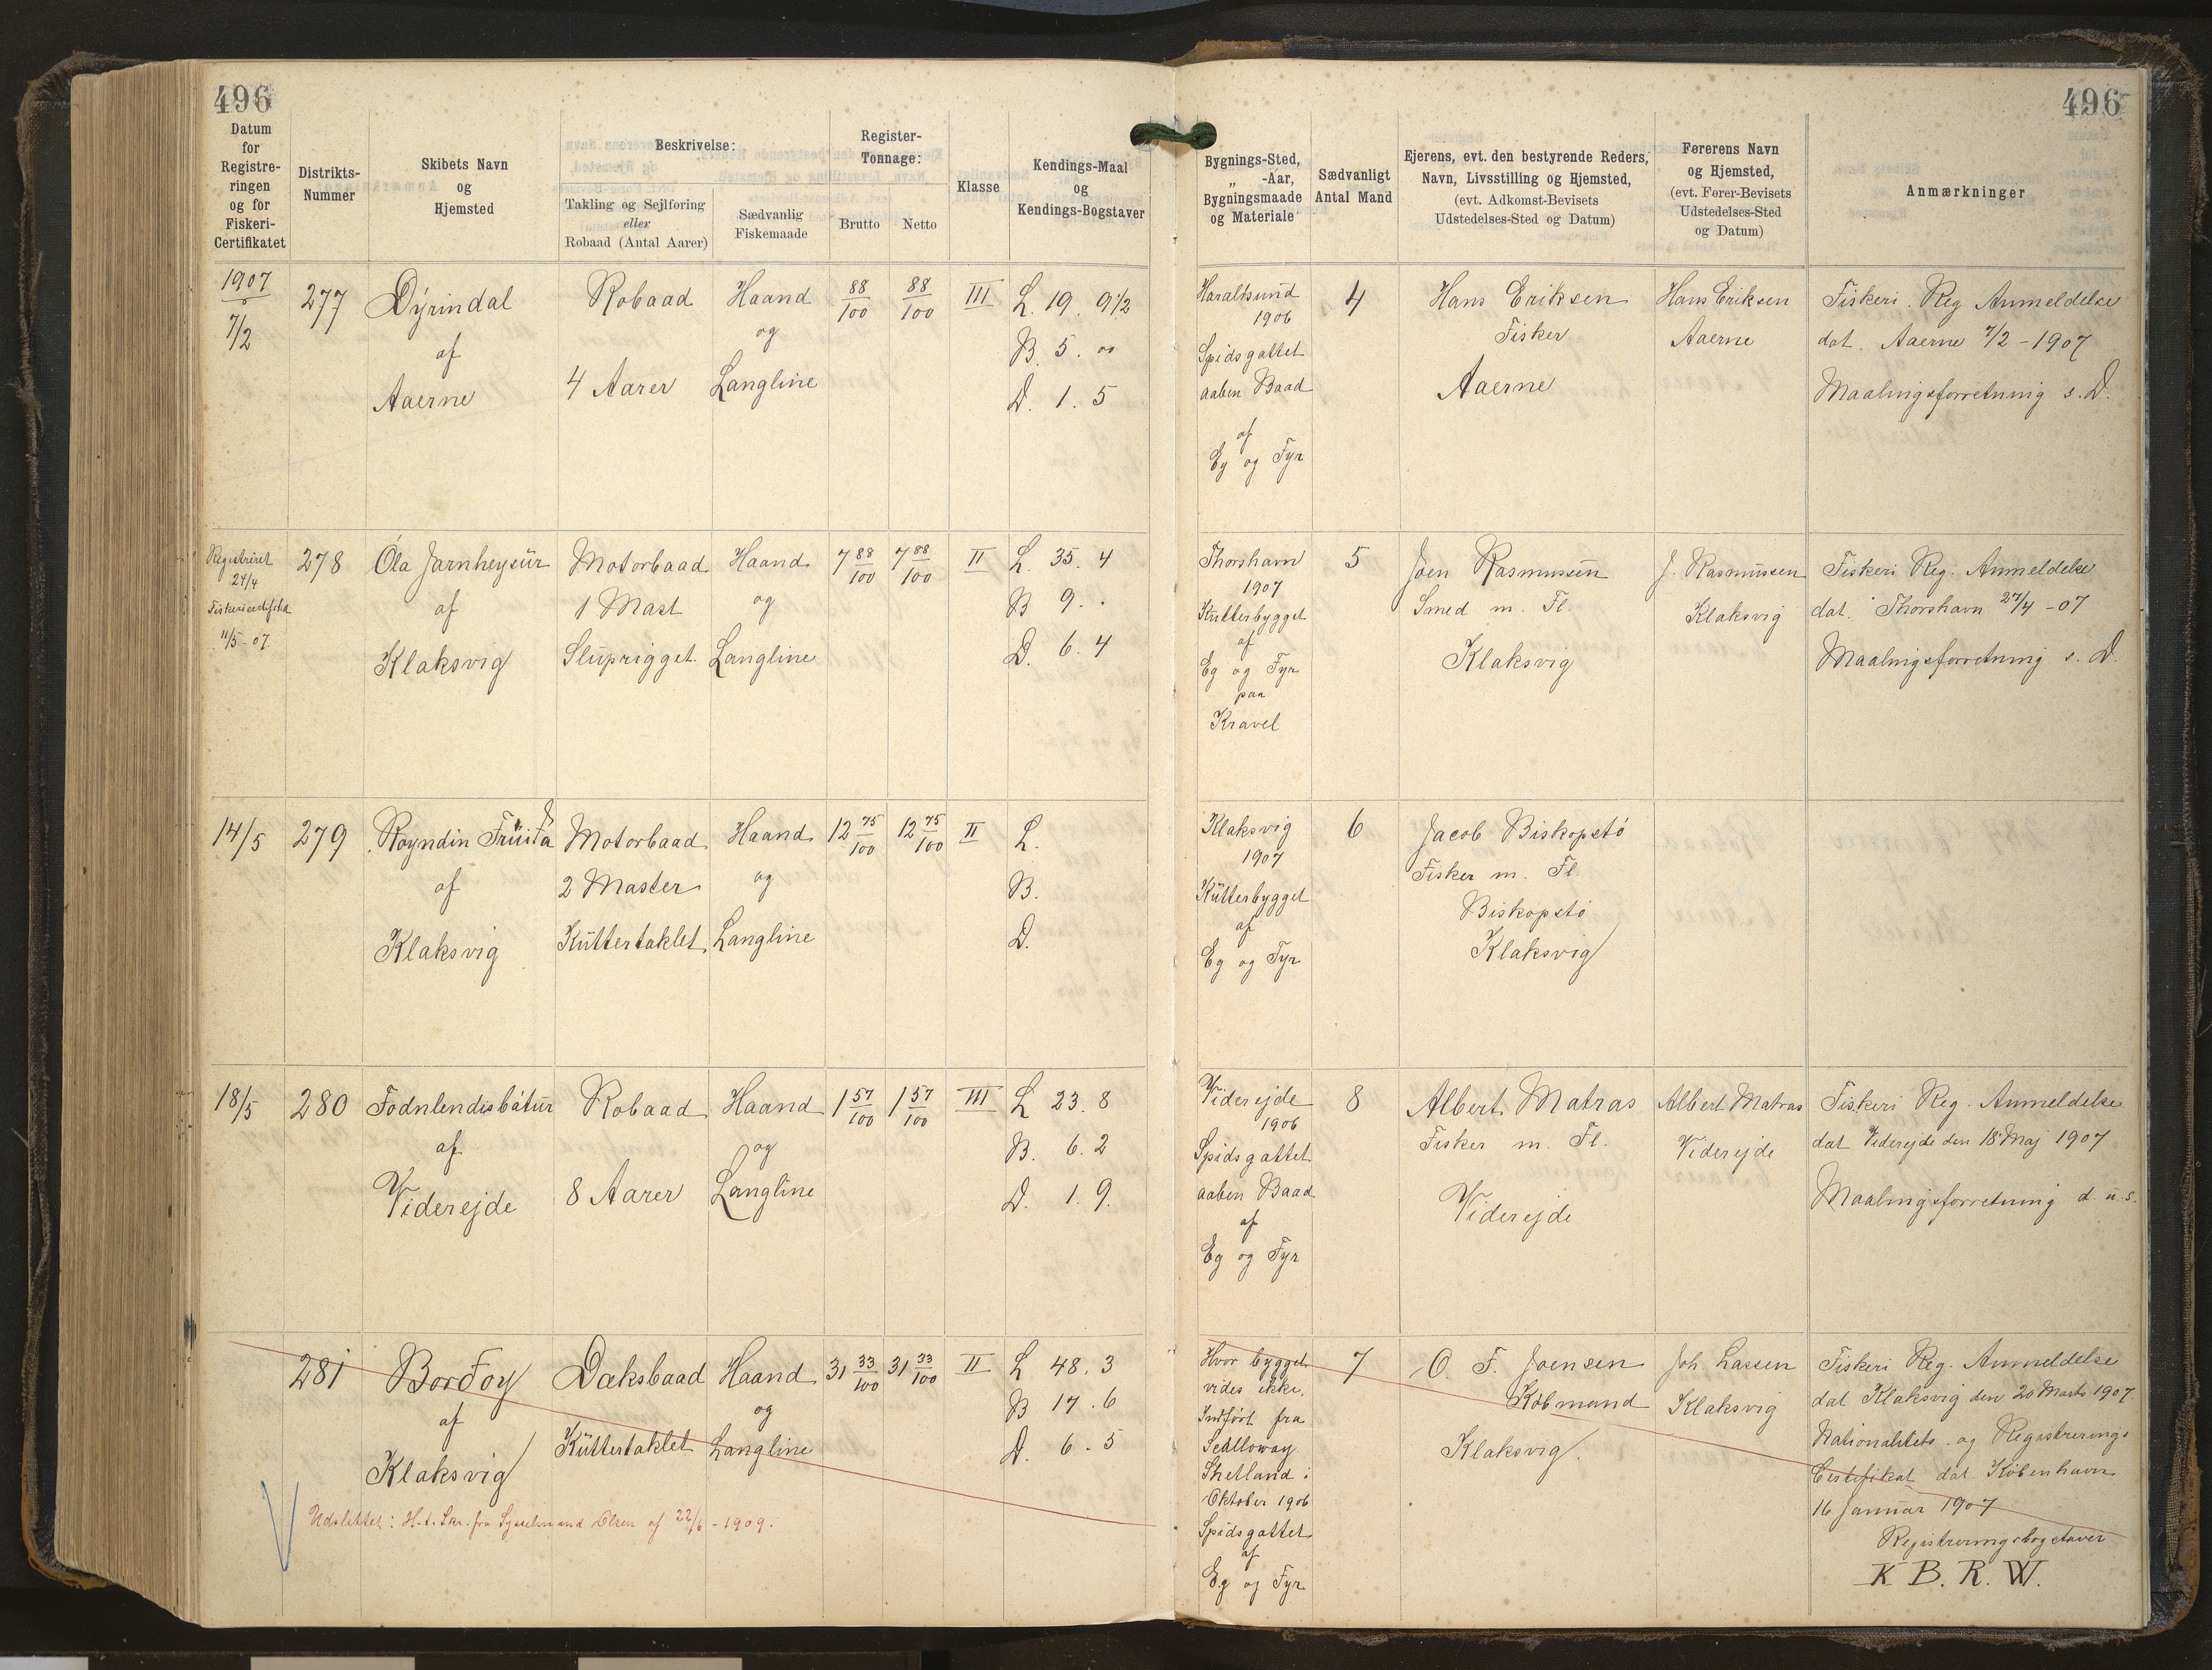 496
Datum
for
Registre-
ringen
og for
Fiskeri-
Certifikatet
Distrikts-
Nummer
Skibets Navn
og
Hjemsted
Beskrivelse:
Takling og Sejlføring
eller
Robaad (Antal Aarer)
Sædvanlig
Fiskemaade
Register-
Tonnage:
Brutto
Netto
Klasse
Kendings-Maal
og
Kendings-Bogstaver
1907
7/2
277
Dýrindal
af
Aaerne
Robaad
4 Aarer
Haand
og
Langline
88/100
88/100
III
L. 19. 9½
B. 5. "
D. 1. 5
Registreret
27/4
11/5-07
278
Óla Jarnheysur
af
Klaksvig
Motorbaad
1 Mast
Sluprigget.
Haand
og
Langline
7 88/100
7 88/100
II
L. 35. 4
B 9. .
D. 6. 4
14/5
279
Royndin Fruita
af
Klaksvig
Motorbaad
2 Master
Kuttertaklet
Haand
og
Langline
12 75/100
12 75/100
II
L.
B.
D.
18/5
280
Fodnlendisbátur
af
Viderejde
Robaad
8 Aarer
Haand
og
Langline
1 57/100
1 57/100
III
L 23. 8
B. 6. 2
D. 1. 9.
281
Bordoy
af
Klaksvig
Dæksbaad
Kuttertaklet
Haand
og
Langline
31 33/100
31 33/100
II
L 48. 3
B 17. 6
D. 6. 5
Udslettet: H.t. Skr. fra Sysselmand Olsen af 22/6-1909.
496
Bygnings-Sted,
„ -Aar,
Bygningsmaade
og Materiale
Sædvanligt
Antal Mand
Ejerens, evt. den bestyrende Reders,
Navn, Livsstilling og Hjemsted,
(evt. Adkomst-Bevisets
Udstedelses-Sted og Datum)
Førerens Navn
og Hjemsted,
(evt. Fører-Bevisets
Udstedelses-Sted
og Datum)
Anmærkninger
Haraldsund
1906
Spidsgattet
aaben Baad
af
Eg og Fyr
4
Hans Eriksen
Fisker
Aaerne
Hans Eriksen
Aaerne
Fiskeri. Reg Anmeldelse
dat. Aaerne 7/2-1907
Maalingsforretning s. D.
Thorshavn
1907
Kutterbygget
af
Eg og Fyr
paa
Kravel
5
Joen Rasmussen
Smed m. Fl.
Klaksvig
J. Rasmussen
Klaksvig
Fiskeri Reg. Anmeldelse
dat. Thorshavn 27/4-07
Maalingsforretning s. D.
Klaksvig
1907
Kutterbygget
af
Eg og Fyr
6
Jacob Biskopstó
Fisker m. Fl.
Biskopstó
Klaksvig
Viderejde
1906
Spidsgattet
aaben Baad
af
Eg og Fyr
8
Albert Matras
Fisker m. Fl.
Viderejde
Albert Matras
Viderejde
Fiskeri Reg. Anmeldelse
dat Viderejde den 18 Maj 1907
Maalingsforretning d. u. s.
Hvor bygget
vides ikke.
Indført fra
Scalloway
Shetland i
Oktober 1906
Spidsgattet
af
Eg og Fyr
7
O. F. Joensen
Købmand
Klaksvig.
Joh Lassen
Klaksvig
Fiskeri Reg. Anmeldelse
dat Klaksvig den 20 Marts 1907
Nationalitets- og Registrerings
Certifikat dat København
16 Januar 1907
Registreringsbogstaver
K B. R. W.